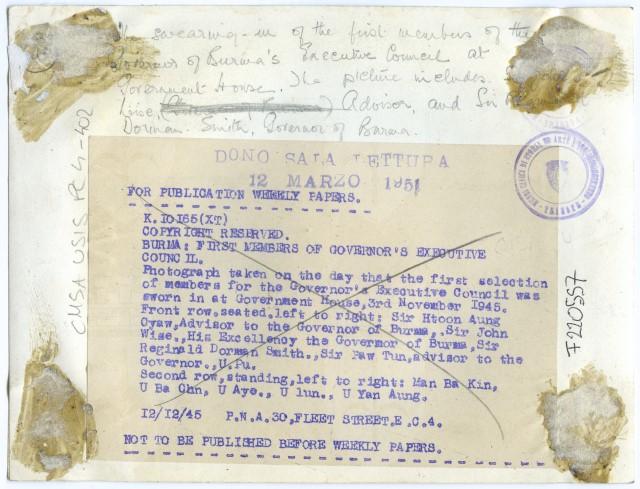 The swearing-in of the first members of the
Governor of Burma's Executive Council at
Government House. The picture includes
Wise, Advisor, and Sir Reginald
Dorman-Smith, Governor of Burma.
DONO SALA LETTURA
12 MARZO 1951
FOR PUBLICATION WEEKLY PAPERS.
K.10165(XT)
COPYRIGHT RESERVED.
BURMA: FIRST MEMBERS OF GOVERNOR'S EXECUTIVE
COUNCIL.
Photograph taken on the day that the first selection
of members for the Governor's Executive Council was
sworn in at Government House, 3rd November 1945.
Front row, seated, left to right: Sir Htoon Aung
Gyaw, Advisor to the Governor of Burma, .Sir John
Wise., His Excellency the Governor of Burma, Sir
Reginald Dorman Smith., Sir Paw Tun, advisor to the
Governor., U.Pu.
Second row, standing, left to right: Man Ba Kin,
U Ba Ohn, U Aye., U lun., U Yan Aung.
12/12/45 P.N.A. 30, FLEET STREET, E.C.4.
NOT TO BE PUBLISHED BEFORE WEEKLY PAPERS.
CMSA USIS PL 4-402
F220557